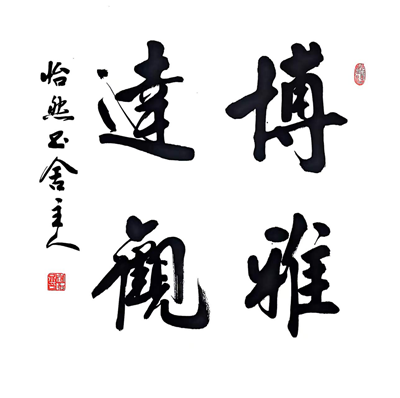 博雅
達觀
怡然玉舍主人